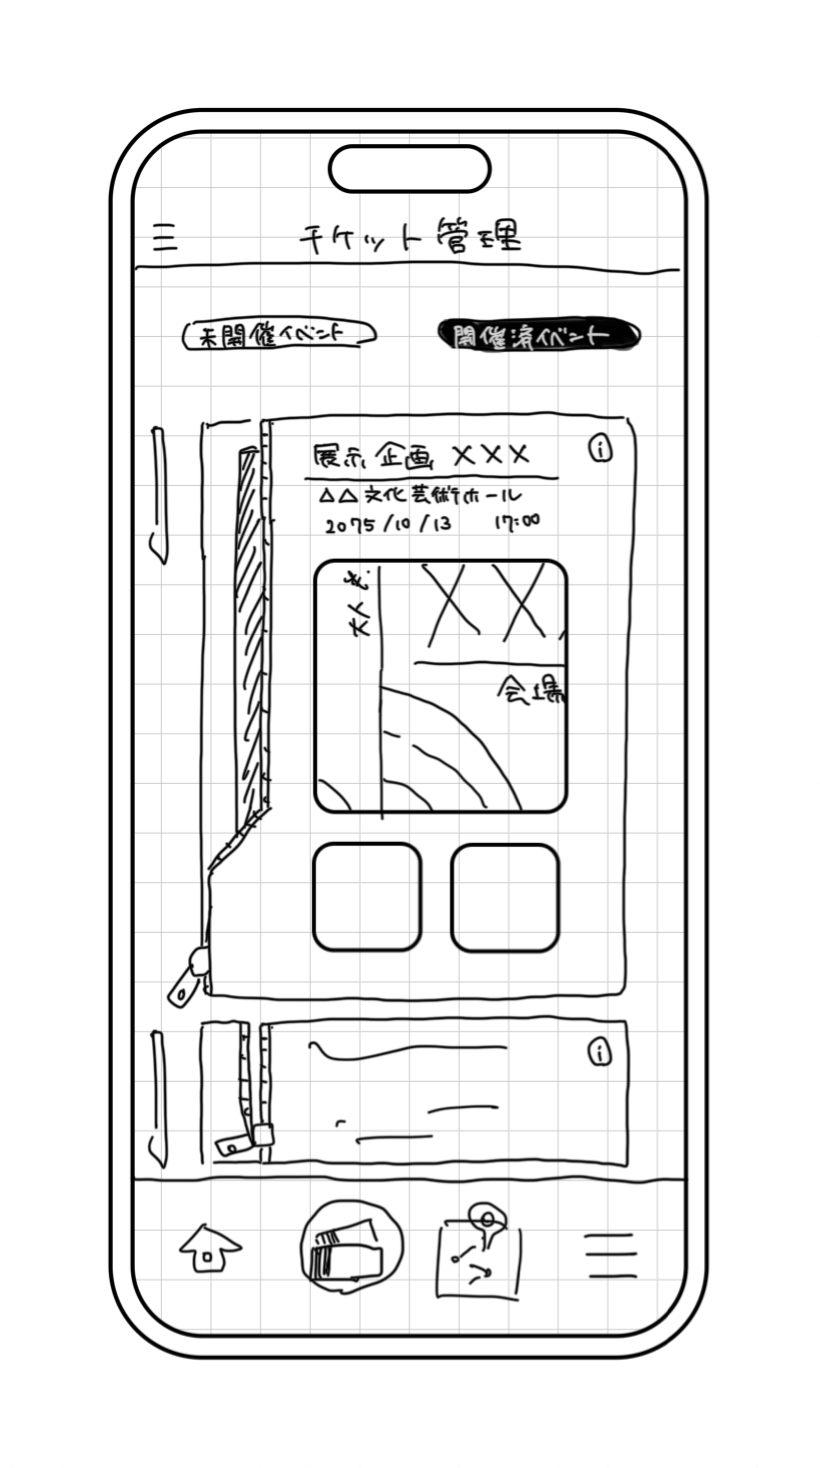 チケット管理
未開催イベント
開催済イベント
展示企画 ×××
i
△△文化芸術ホール
2075/10/13 17:00
会場
i